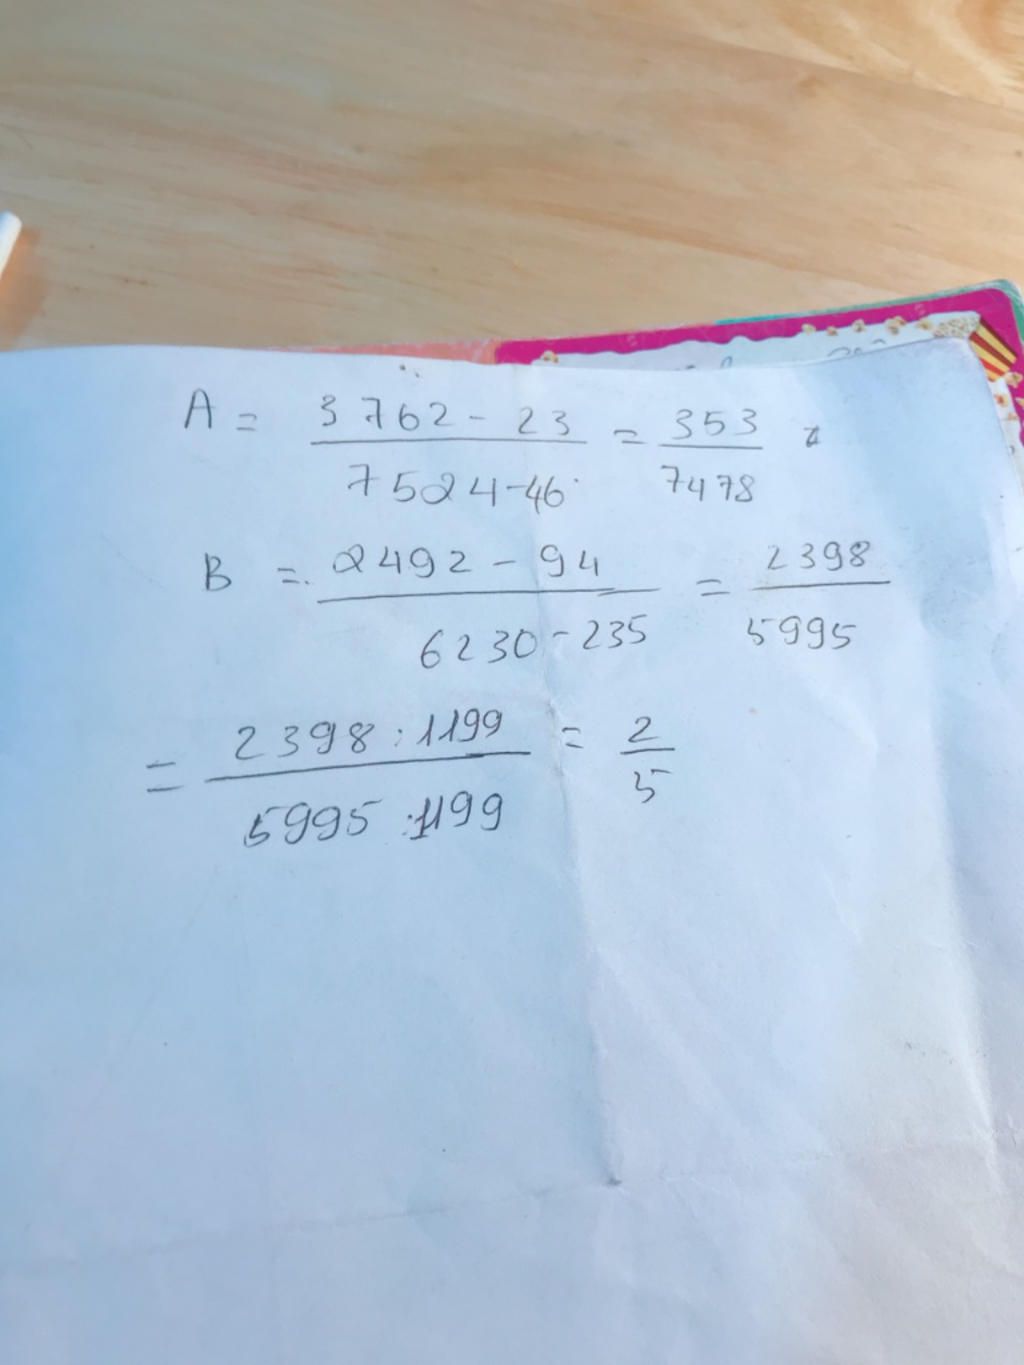 A = 3762 - 23 / 7524 - 46 = 353 / 7478
B = 2492 - 94 / 6230 - 235 = 2398 / 5995
= 2398 : 1199 / 5995 : 1199 = 2 / 5